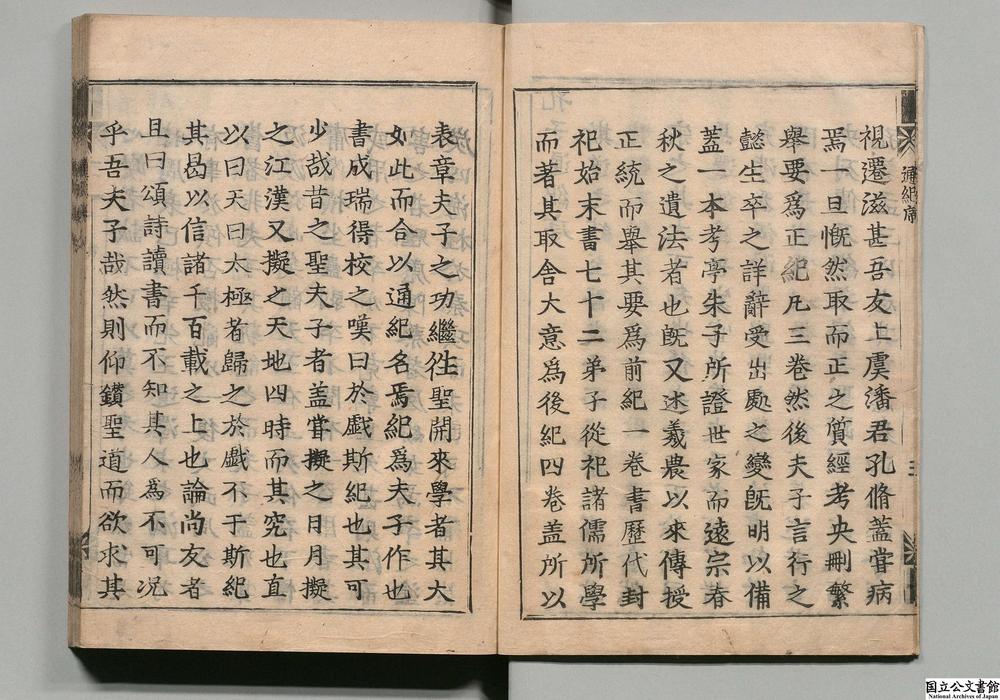 視遷滋甚吾友上虞潘君孔脩蓋嘗病
焉一旦慨然取而正之質經考史刪繁
舉要爲正紀凡三卷然後夫子言行之
懿生卒之詳辭受出處之變旣明以備
蓋一本考亭朱子所證世家而遠宗春
秋之遺法者也旣又述羲農以來傳授
正統而舉其要爲前紀一卷書歷代封
祀始末書七十二弟子從祀諸儒所學
而著其取舍大意爲後紀四卷盖所以
通紀序
表章夫子之功繼徃聖開來學者其大
如此而合以通紀名焉紀爲夫子作也
書成瑞得校之嘆曰於戲斯紀也其可
少哉昔之聖夫子者盖嘗擬之日月擬
之江漢又擬之天地四時而其究也直
以曰天曰太極者歸之於戲不于斯紀
其曷以信諸千百載之上也論尚友者
且曰頌詩讀書而不知其人為不可况
乎吾夫子哉然則仰鑚聖道而欲求其
国立公文書館
National Archives of Japan